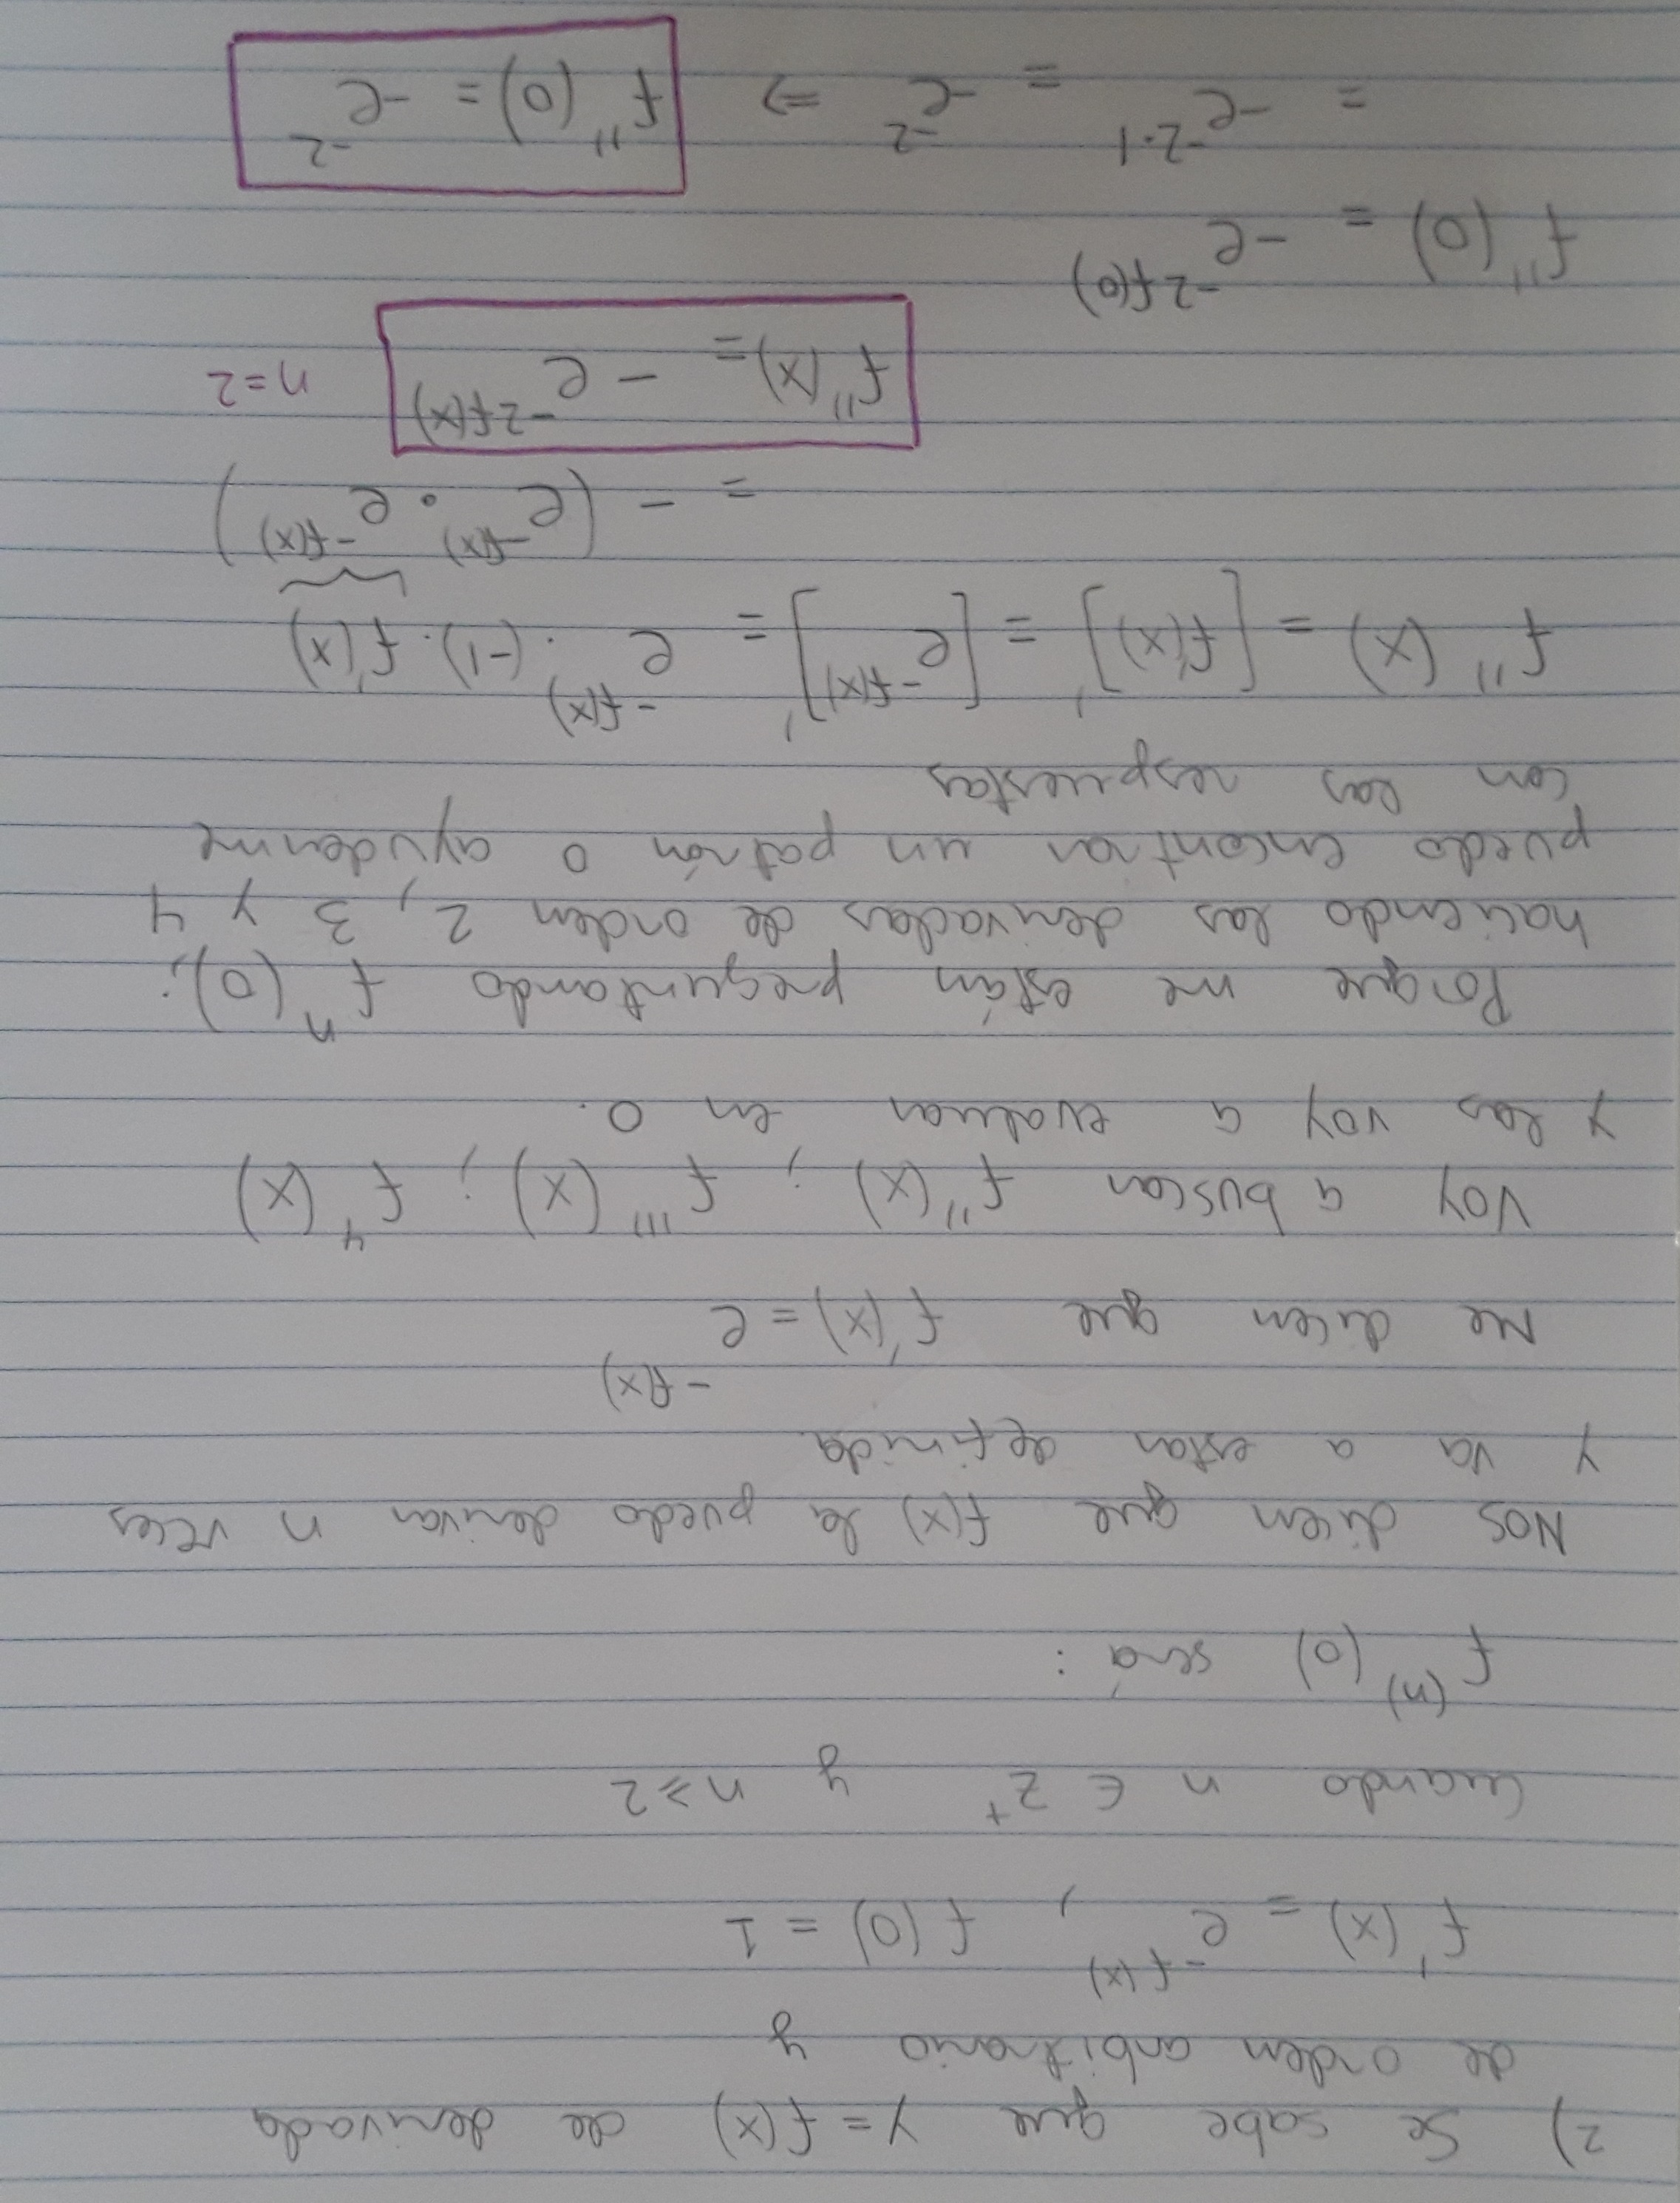 2) Se sabe que y = f(x) de derivada
de orden arbitrario y
f'(x) = e^{-f(x)}, f(0) = 1
Cuando n ∈ Z⁺ y n ≥ 2
f^{(n)}(0) será:
Nos dicen que f(x) la puedo derivar n veces
y va a estar definida.
Me dicen que f'(x) = e^{-f(x)}
Voy a buscar f''(x) ; f'''(x) ; f⁴(x)
y las voy a evaluar en 0.
Porque me están preguntando fⁿ(0);
haciendo las derivadas de orden 2, 3 y 4
puedo encontrar un patrón o ayudarme
con las respuestas
f''(x) = [f'(x)]' = [e^{-f(x)}]' = e^{-f(x)} . (-1) . f'(x)
= - (e^{-f(x)} • e^{-f(x)})
f''(x) = - e^{-2f(x)} n=2
f''(0) = -e^{-2f(0)}
= -e^{-2·1} = -e^{-2} ⇒ f''(0) = -e^{-2}